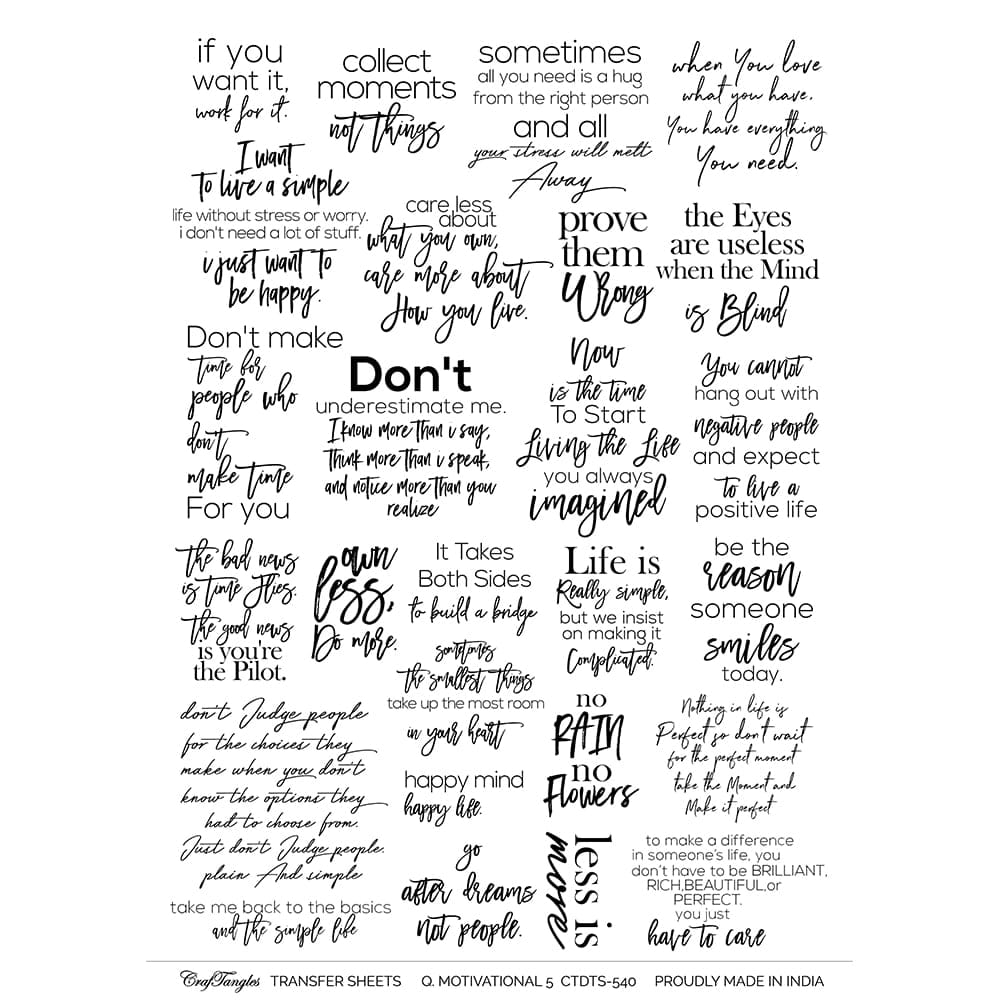 if you
want it,
work for it.
collect
moments
not things
sometimes
all you need is a hug
from the right person
and all
your stress will melt
Away
when You love
what you have.
You have everything
You need.
I want
To live a simple
life without stress or worry.
i don't need a lot of stuff.
i just want to
be happy.
care less
about
what you own,
care more about
How you live.
prove
them
Wrong
the Eyes
are useless
when the Mind
is Blind
Don't make
time for
people who
don't
make time
For you
Don't
underestimate me.
I know more than i say,
think more than i speak,
and notice more than you
realize
Now
is the time
To Start
Living the Life
you always
imagined
You cannot
hang out with
negative people
and expect
to live a
positive life
the bad news
is time flies.
the good news
is you're
the Pilot.
own
less,
Do more.
It Takes
Both Sides
to build a bridge
Life is
Really simple,
but we insist
on making it
Complicated.
be the
reason
someone
smiles
today.
sometimes
the smallest things
take up the most room
in your heart
don't Judge people
for the choices they
make when you don't
know the options they
had to choose from.
Just don't Judge people.
plain And simple
happy mind
happy life.
no
RAIN
no
Flowers
Nothing in life is
Perfect so don't wait
for the perfect moment
take the Moment and
Make it perfect
take me back to the basics
and the simple life
go
after dreams
not people.
less is
more
to make a difference
in someone's life, you
don't have to be BRILLIANT,
RICH,BEAUTIFUL,or
PERFECT.
you just
have to care
CrafTangles TRANSFER SHEETS Q. MOTIVATIONAL 5 CTDTS-540 PROUDLY MADE IN INDIA